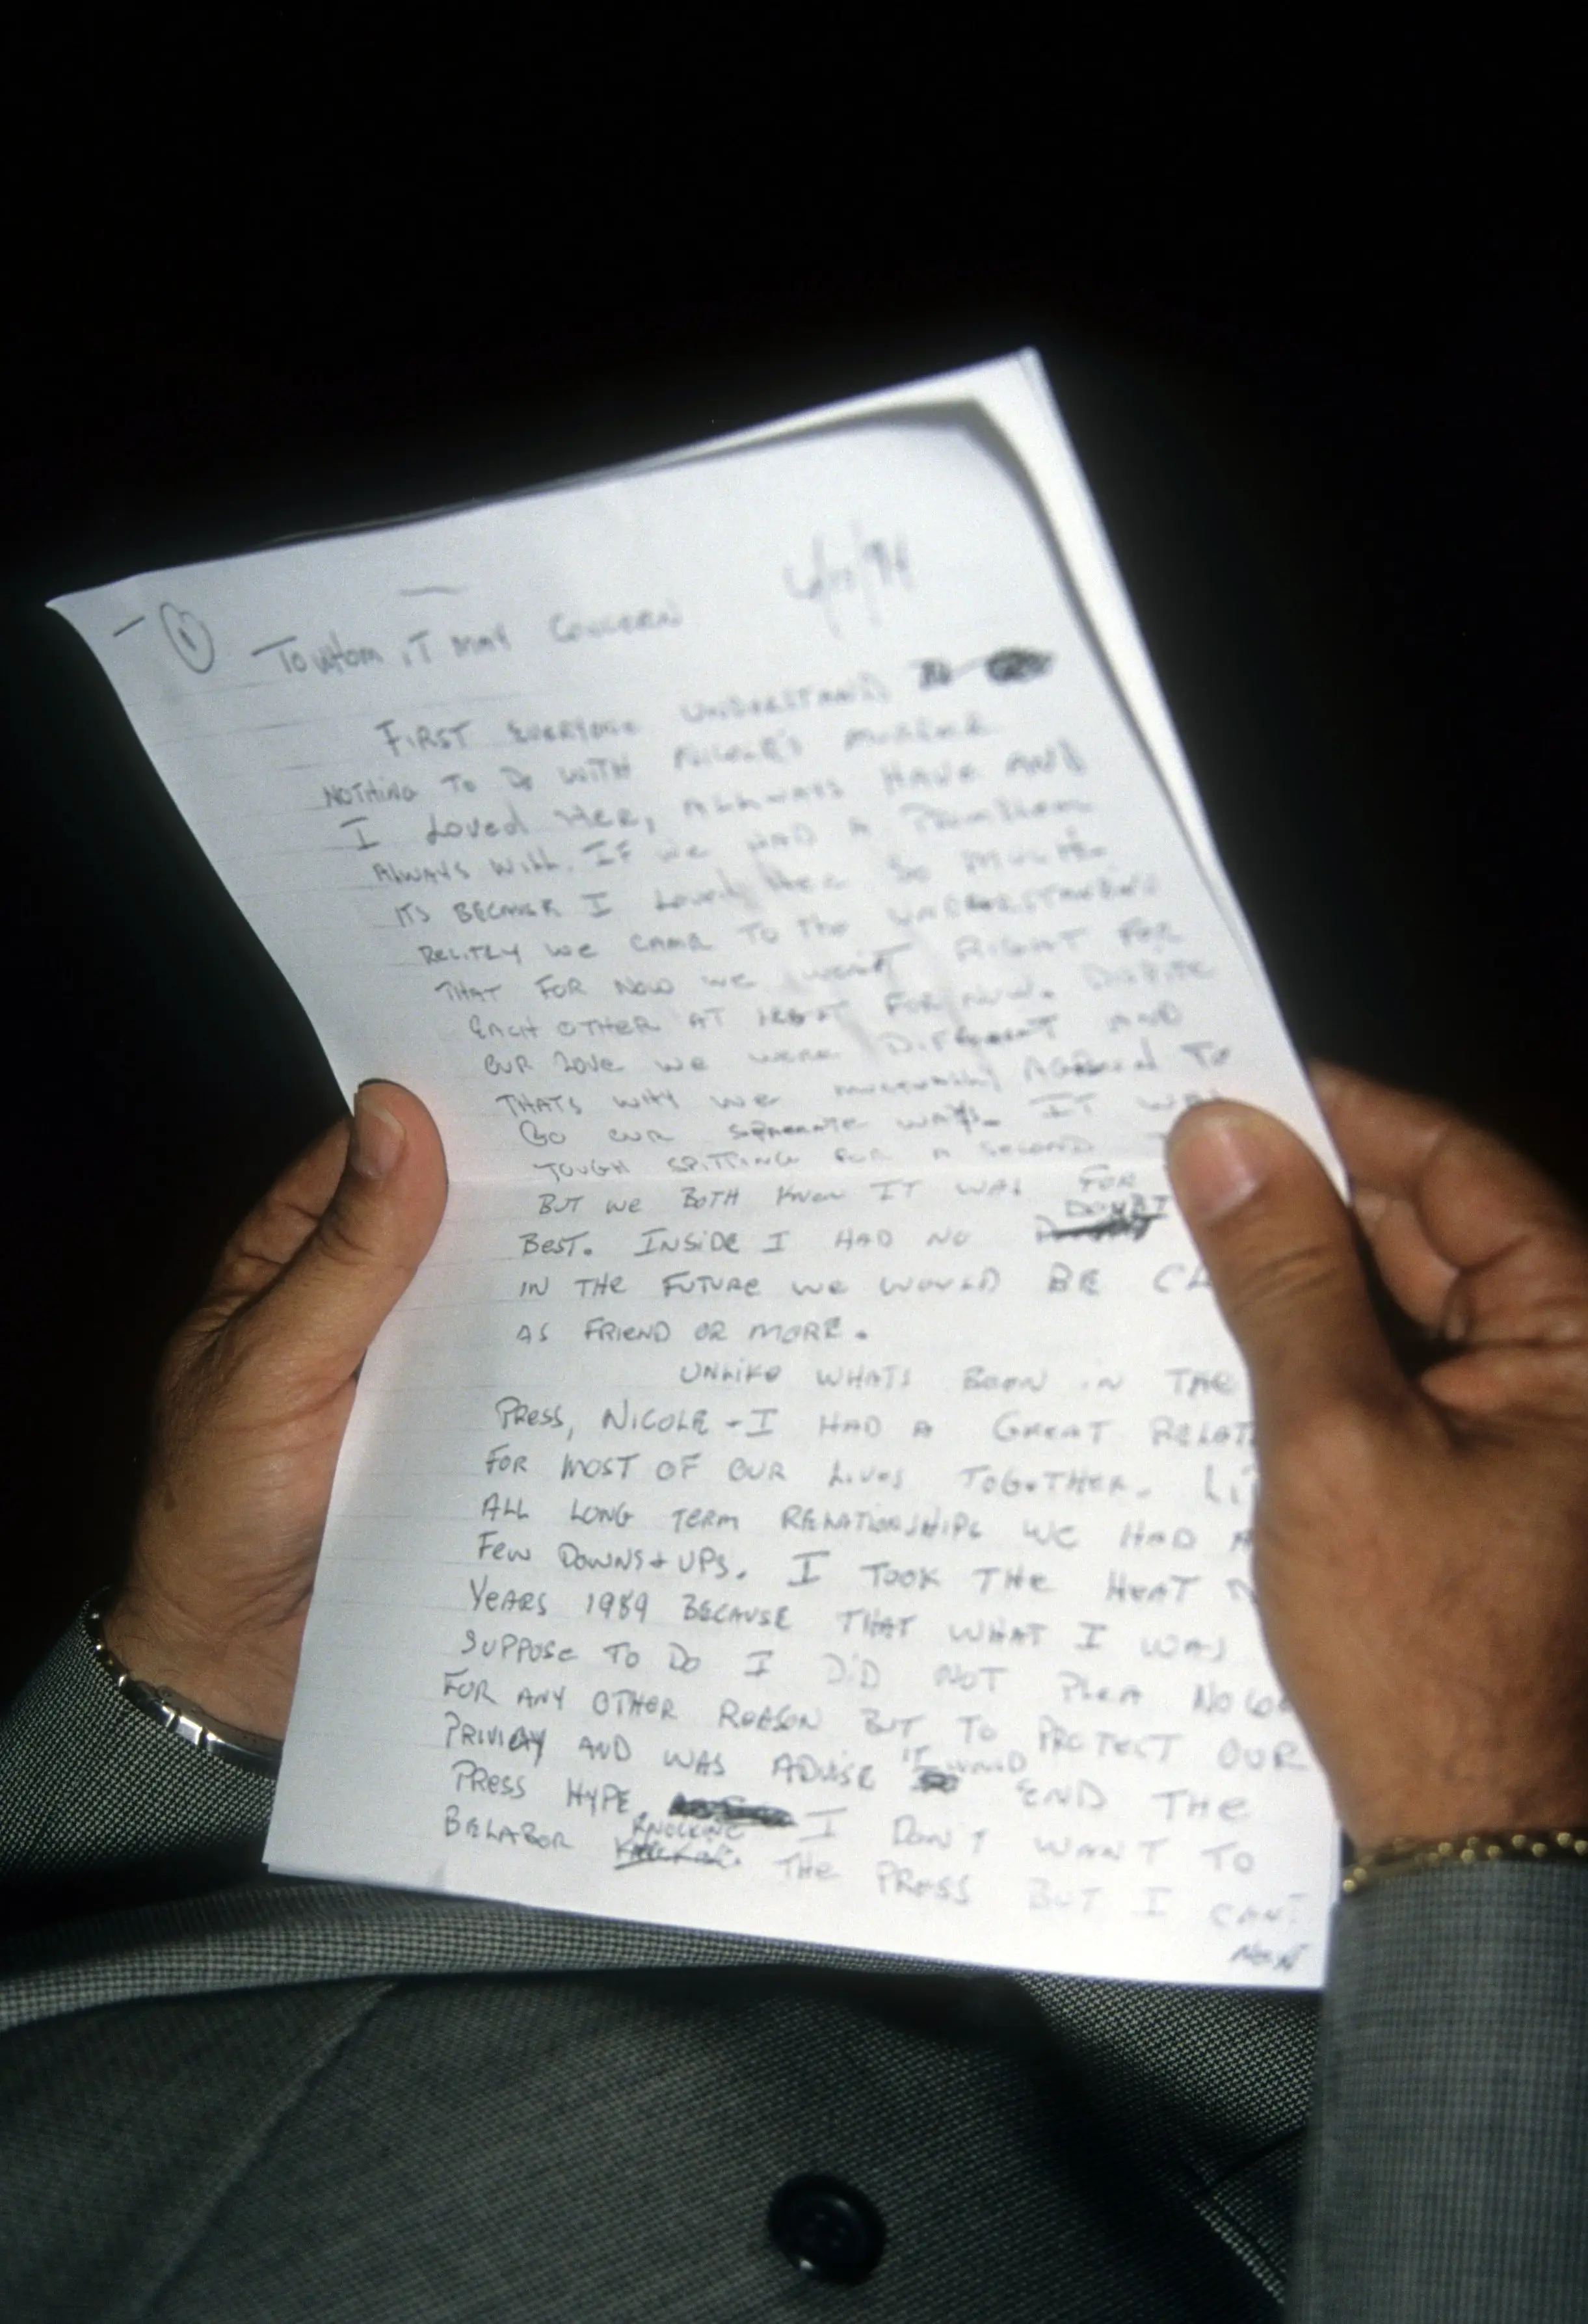 1
To whom iT MAY CONCERN 6/17/94
FIRST EVERYONE UNDERSTAND
NOTHING TO Do WITH NICOLE'S MURDER
I Loved Her, ALLWAYS HAVE AND
ALWAYS WILL. IF we HAD A PROBLEM
ITS BECAUSE I Loved Her So MUCH.
RECITLY we CAME TO The UNDERSTANDING
THAT FOR NOW we WERN'T RIGHT FOR
EACH OTHER AT LEAST FOR NOW. DISPITE
OUR LOVE we WERE DIFFERENT AND
THATS WHY we MUTUALLY AGREED TO
GO OUR SEPARATE WAYS. IT WAS
TOUGH SPITTING FOR A SECOND T
BUT we BOTH KNEW IT WAS FOR
DOUBT
BEST. INSIDE I HAD NO
IN THE FUTURE we WOULD BE CL
AS FRIEND OR MORE.
UNLIKE WHATS BEEN IN THE
PRESS, NICOLE - I HAD A GREAT RELAT
FOR MOST OF OUR LIVES TOGETHER. LI
ALL LONG TERM RELATIONSHIPS WE HAD A
FEW DOWNS + UPS. I TOOK THE HEAT N
YEARS 1989 BECAUSE THAT WHAT I WAS
SUPPOSE TO DO I DID NOT PLEA NO CO
FOR ANY OTHER REASON BUT TO PROTECT OUR
PRIVICY AND WAS ADVISE IT WOULD END THE
PRESS HYPE. I DON'T WANT TO
BELABOR KNOCKING THE PRESS BUT I CAN'T